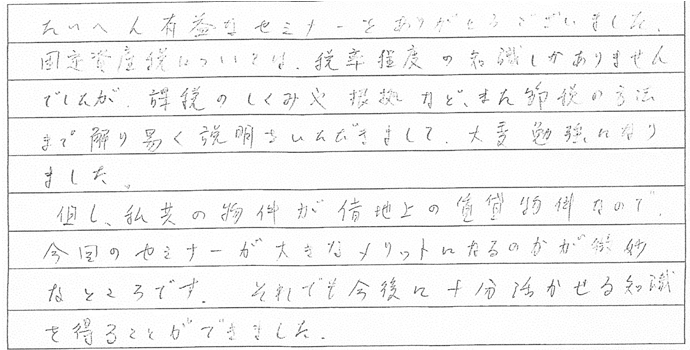 たいへん有益なセミナーをありがとうございました。
固定資産税については、税率程度の知識しかありません
でしたが、課税のしくみや根拠など、また節税の方法
まで解り易く説明をいただきまして、大変勉強になり
ました。
但し、私共の物件が借地上の賃貸物件なので、
今回のセミナーが大きなメリットになるのかが微妙
なところです。それでも今後に十分活かせる知識
を得ることができました。